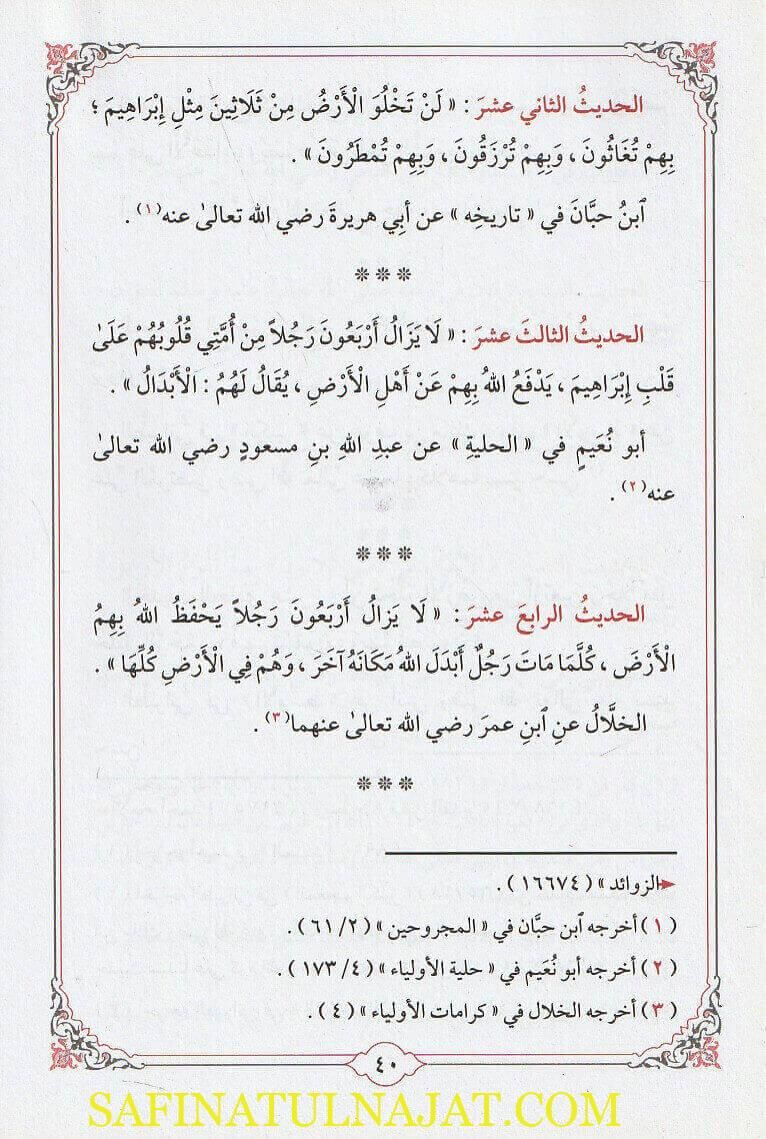 الحديثُ الثاني عشرَ : « لَنْ تَخْلُوَ الْأَرْضُ مِنْ ثَلَاثِينَ مِثْلِ إِبْرَاهِيمَ ؛
بِهِمْ تُغَاثُونَ ، وَبِهِمْ تُرْزَقُونَ ، وَبِهِمْ تُمْطَرُونَ » .
ٱبنُ حبَّانَ في « تاريخِه » عن أبي هريرةَ رضي الله تعالىٰ عنه(١) .
***
الحديثُ الثالثَ عشرَ : « لَا يَزَالُ أَرْبَعُونَ رَجُلاً مِنْ أُمَّتِي قُلُوبُهُمْ عَلَىٰ
قَلْبِ إِبْرَاهِيمَ ، يَدْفَعُ اللهُ بِهِمْ عَنْ أَهْلِ الْأَرْضِ ، يُقَالُ لَهُمُ : الْأَبْدَالُ » .
أبو نُعَيمٍ في « الحليةِ » عن عبدِ اللهِ بنِ مسعودٍ رضي الله تعالىٰ
عنه(٢) .
***
الحديثُ الرابعَ عشرَ : « لَا يَزالُ أَرْبَعُونَ رَجُلاً يَحْفَظُ اللهُ بِهِمُ
الْأَرْضَ ، كُلَّمَا مَاتَ رَجُلٌ أَبْدَلَ اللهُ مَكَانَهُ آخَرَ ، وَهُمْ فِي الْأَرْضِ كُلِّهَا » .
الخلَّالُ عنِ ٱبنِ عمرَ رضي الله تعالىٰ عنهما(٣) .
***
الزوائد » ( ١٦٦٧٤ ) .
( ١ ) أخرجه ٱبن حبَّان في « المجروحين » ( ٢/ ٦١ ) .
( ٢ ) أخرجه أبو نُعَيم في « حلية الأولياء » ( ٤/ ١٧٣ ) .
( ٣ ) أخرجه الخلال في « كرامات الأولياء » ( ٤ ) .
٤٠
SAFINATULNAJAT.COM